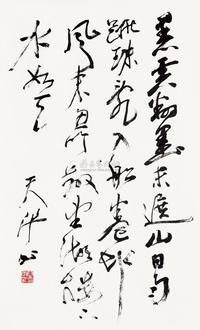 黑雲翻墨未遮山白雨
跳珠亂入船卷地
風来忽吹散望湖樓下
水如天